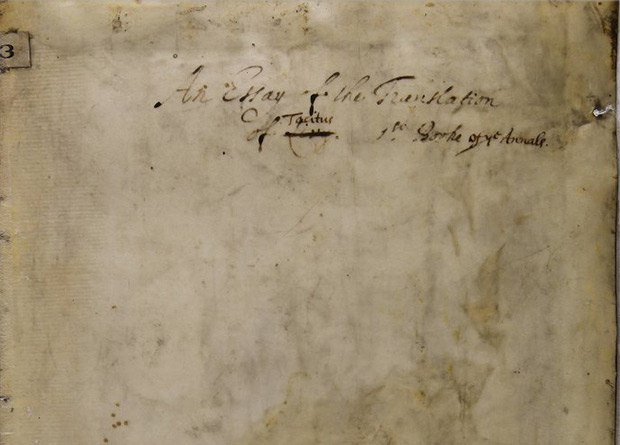 3
An Essay of the Translation
Of Tacitus 1st Booke of ye Annals.